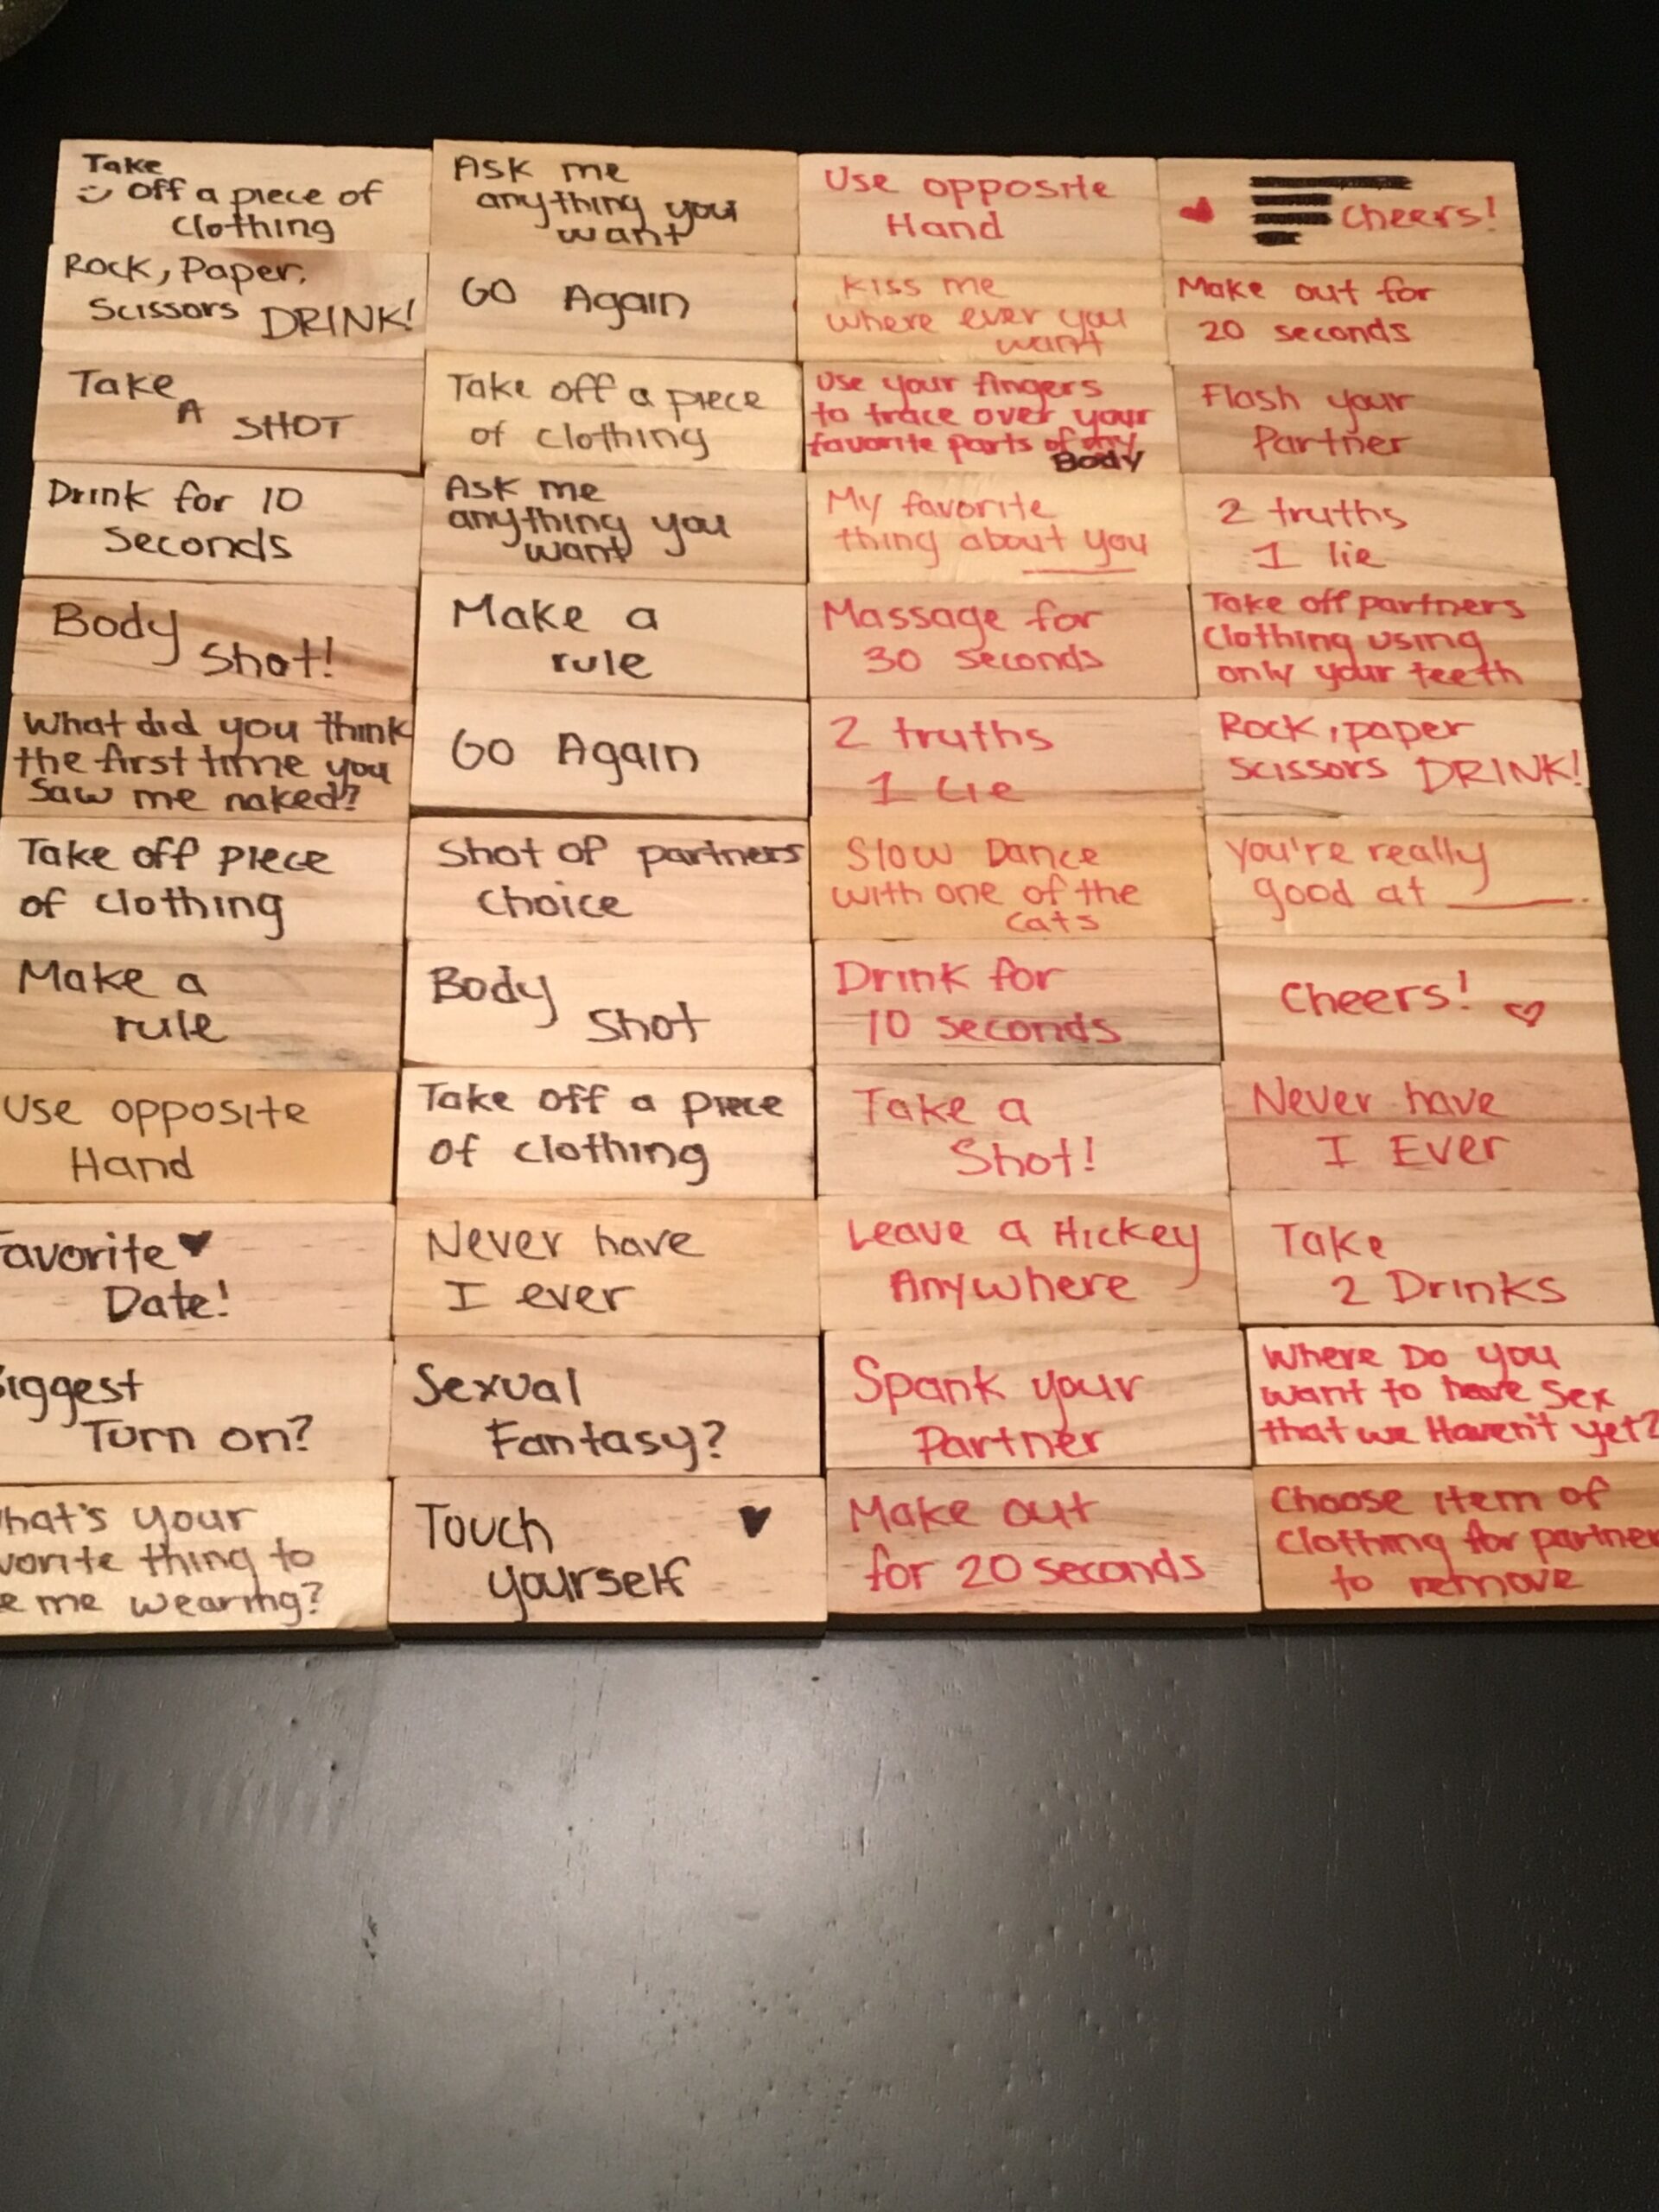 Take
off a piece of
clothing
Rock, Paper,
Scissors DRINK!
Take
A SHOT
Drink for 10
Seconds
Body
Shot!
What did you think
the first time you
Saw me naked?
Take off piece
of clothing
Make a
rule
Use opposite
Hand
avorite
Date!
iggest
Turn on?
hat's your
vorite thing to
e me wearing?
Ask me
anything you
want
Go Again
Take off a piece
of clothing
Ask me
anything you
want
Make a
rule
Go Again
Shot of partners
Choice
Body
Shot
Take off a piece
of clothing
Never have
I ever
Sexual
Fantasy?
Touch
yourself
Use opposite
Hand
Kiss me
where ever you
want
Use your fingers
to trace over your
favorite parts of my
Body
My favorite
thing about you
Massage for
30 seconds
2 truths
1 Lie
Slow Dance
with one of the
cats
Drink for
10 seconds
Take a
Shot!
Leave a Hickey
Anywhere
Spank your
Partner
Make out
for 20 seconds
Cheers!
Make out for
20 seconds
Flash your
Partner
2 truths
1 lie
Take off partners
Clothing using
only your teeth
Rock, paper
scissors DRINK!
You're really
good at ____.
Cheers!
Never have
I Ever
Take
2 Drinks
Where Do you
want to have Sex
that we Haven't yet?
Choose item of
Clothing for partner
to remove